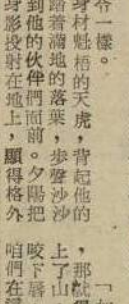 令一樣。
身材魁梧的天虎，背起他的
踏着滿地的落葉，步聲沙沙
到他的伙伴們面前。夕陽把
身影投射在地上，顯得格外
，那
上了山
咬下唇
咱們在